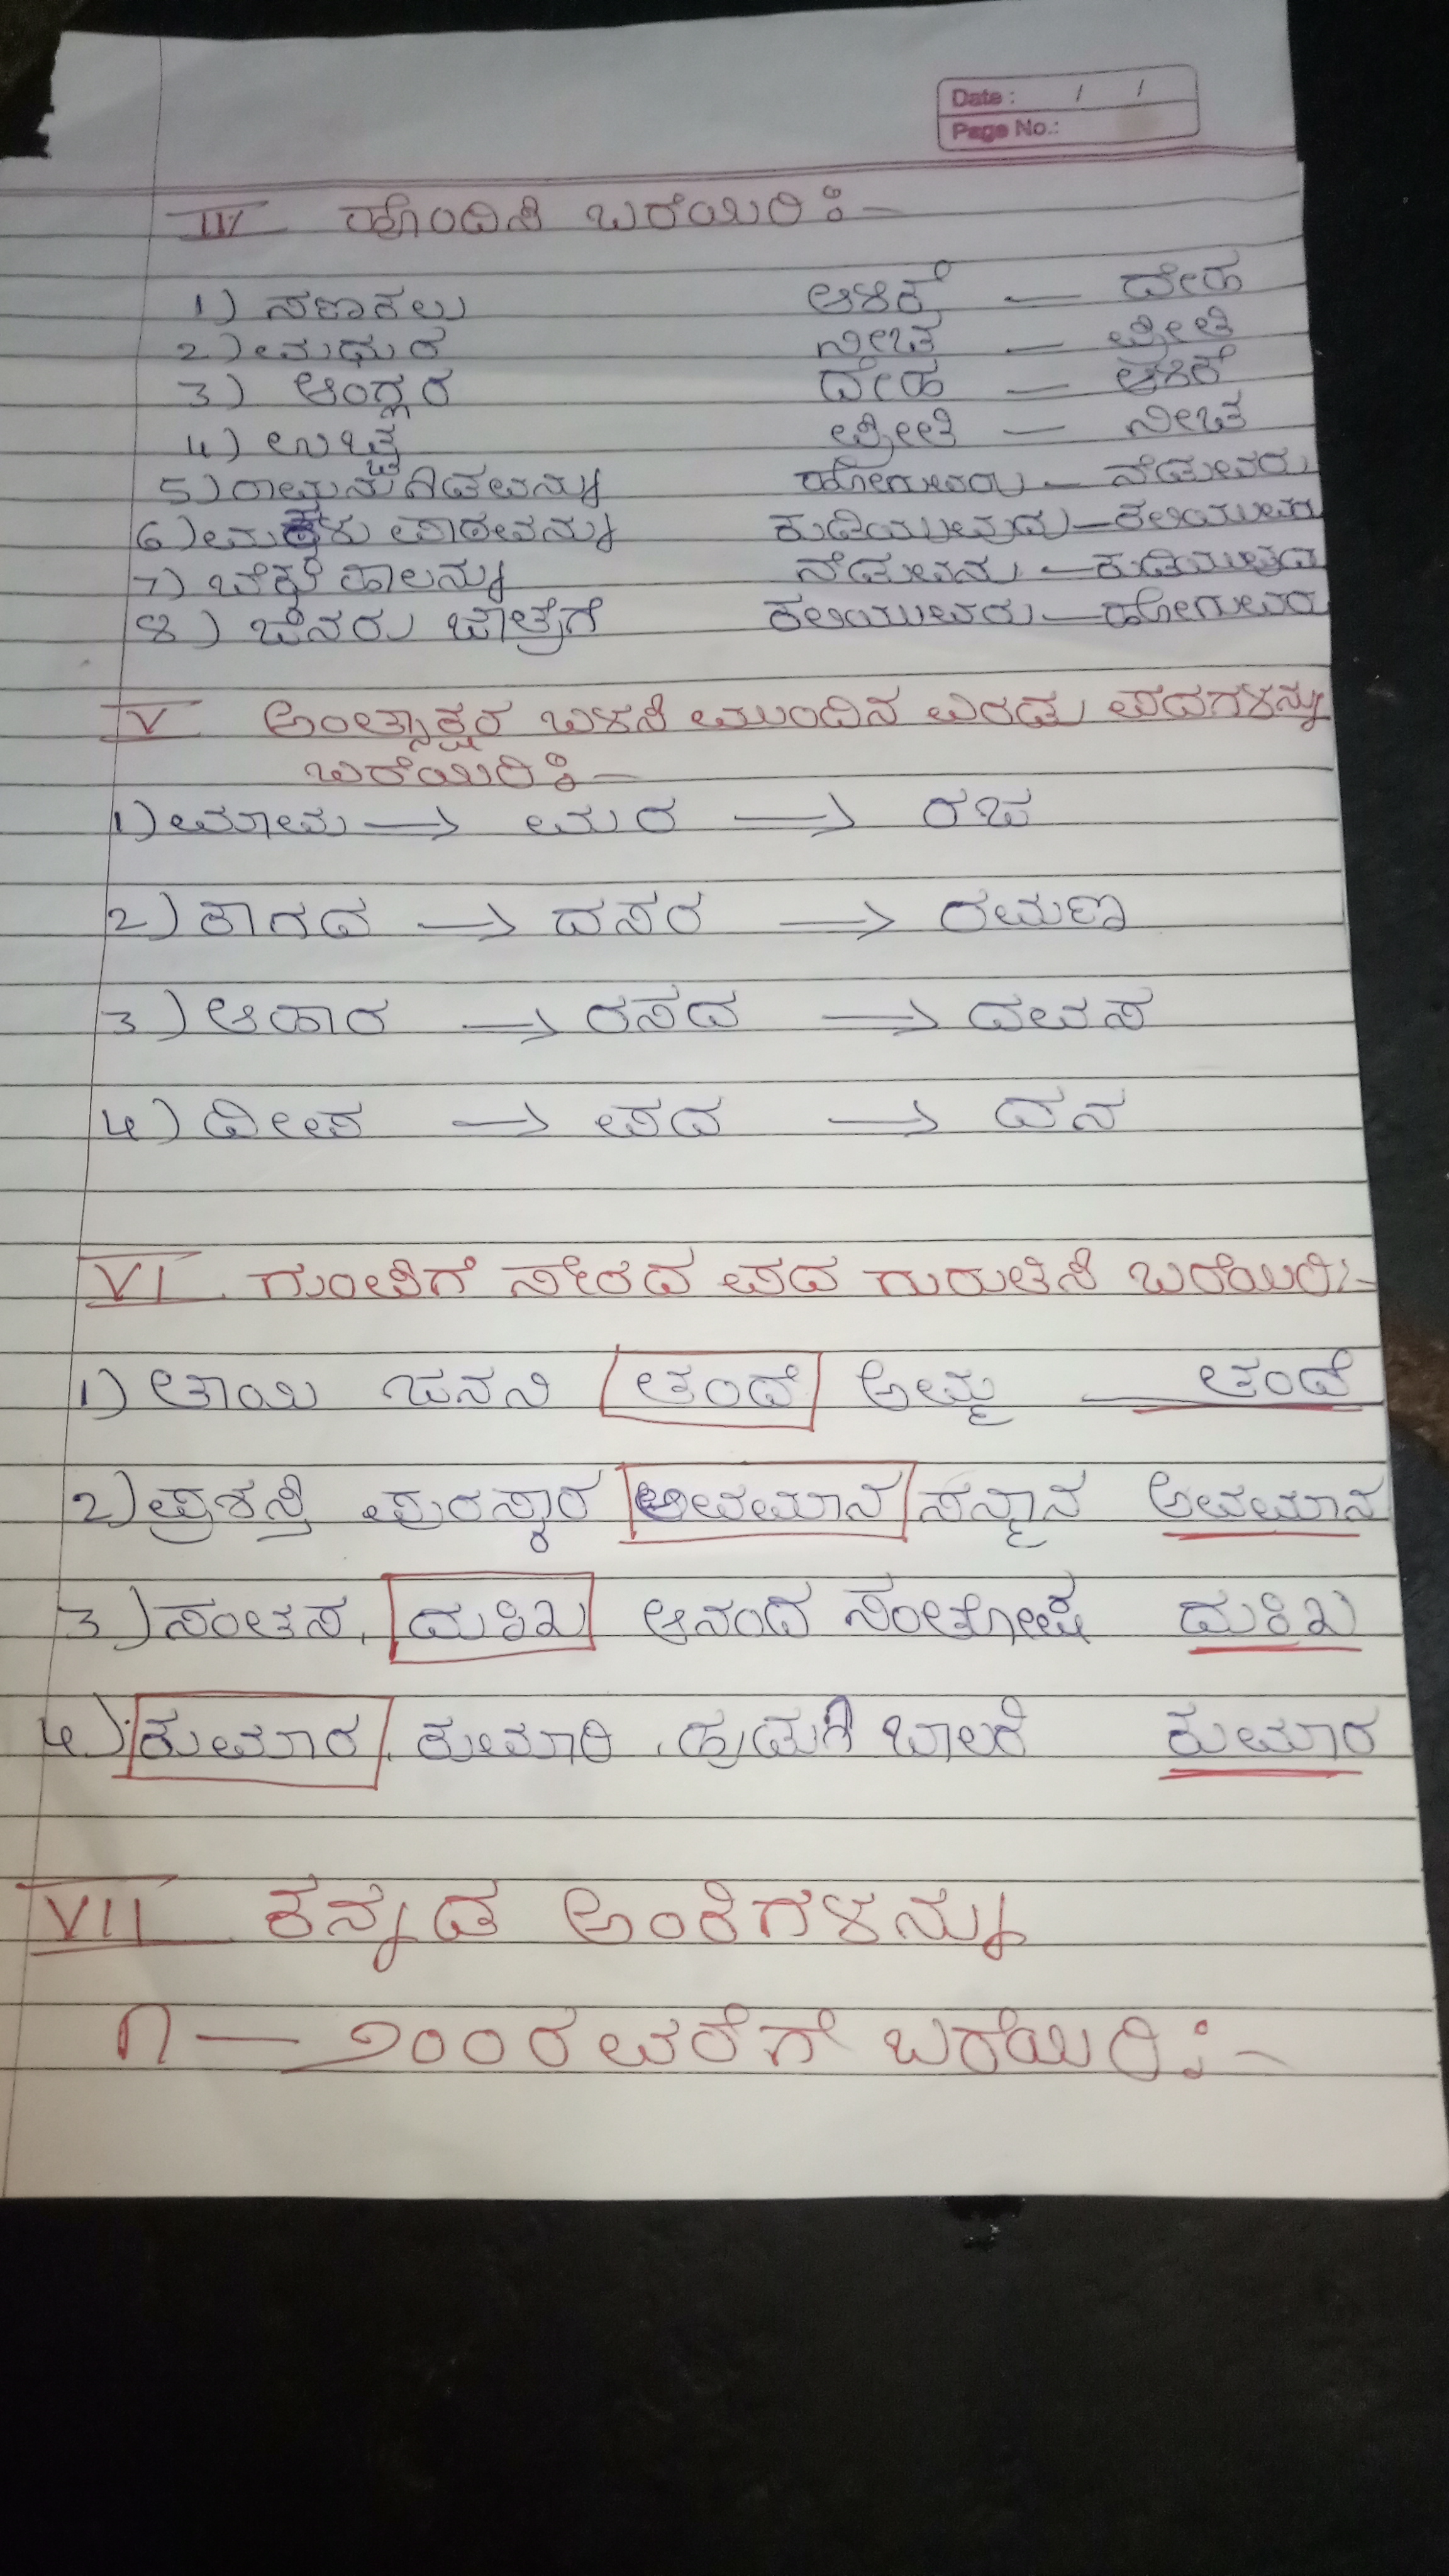 Date : / /
Page No.:
IV ಹೊಂದಿಸಿ ಬರೆಯಿರಿ :-
1) ಸಣಕಲು ಆಳಿಕೆ — ದೇಹ
2) ಮಧುರ ನೀಚ — ಪ್ರೀತಿ
3) ಆಂಗ್ಲರ ದೇಹ — ಆಳಿಕೆ
4) ಉಚ್ಚ ಪ್ರೀತಿ — ನೀಚ
5) ರಾಮನು ಗಿಡವನ್ನು ಹೋಗುವರು — ನೆಡುವನು
6) ಮಕ್ಕಳು ಪಾಠವನ್ನು ಕುಡಿಯುವುದು — ಕಲಿಯುವರು
7) ಬೆಕ್ಕು ಹಾಲನ್ನು ನೆಡುವನು — ಕುಡಿಯುವುದು
8) ಜನರು ಜಾತ್ರೆಗೆ ಕಲಿಯುವರು — ಹೋಗುವರು
V ಅಂತ್ಯಾಕ್ಷರ ಬಳಸಿ ಮುಂದಿನ ಎರಡು ಪದಗಳನ್ನು
ಬರೆಯಿರಿ :-
1) ಮಾಮ → ಮರ → ರಜ
2) ಕಾಗದ → ದಸರ → ರಮಣ
3) ಆಹಾರ → ರಸದ → ದವಸ
4) ದೀಪ → ಪದ → ದನ
VI ಗುಂಪಿಗೆ ಸೇರದ ಪದ ಗುರುತಿಸಿ ಬರೆಯಿರಿ:-
1) ತಾಯಿ ಜನನಿ ತಂದೆ ಅಮ್ಮ — ತಂದೆ
2) ಪ್ರಶಸ್ತಿ ಪುರಸ್ಕಾರ ಅವಮಾನ ಸನ್ಮಾನ ಅವಮಾನ
3) ಸಂತಸ, ದುಃಖ ಆನಂದ ಸಂತೋಷ ದುಃಖ
4) ಕುಮಾರ, ಕುಮಾರಿ, ಹುಡುಗಿ ಬಾಲಕಿ ಕುಮಾರ
VII ಕನ್ನಡ ಅಂಕಿಗಳನ್ನು
೧ — ೨೦೦ರವರೆಗೆ ಬರೆಯಿರಿ :-